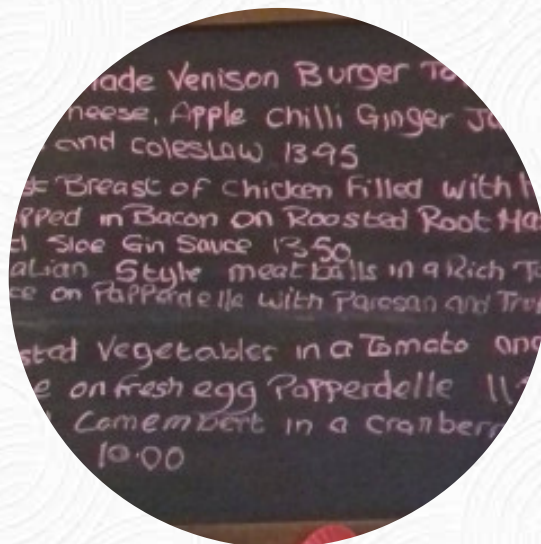 ade Venison Burger To
heese, Apple Chilli Ginger Ja
and Coleslaw 13.95
Breast of Chicken Filled with
pped in Bacon on Roasted Root Ma
Sloe Gin Sauce 13.50
alian Style meatballs in a Rich To
ce on Papperdelle with Paresan and Tru
sted Vegetables in a Tomato and
e on fresh egg Papperdelle 11
Camembert in a Cranberr
10.00